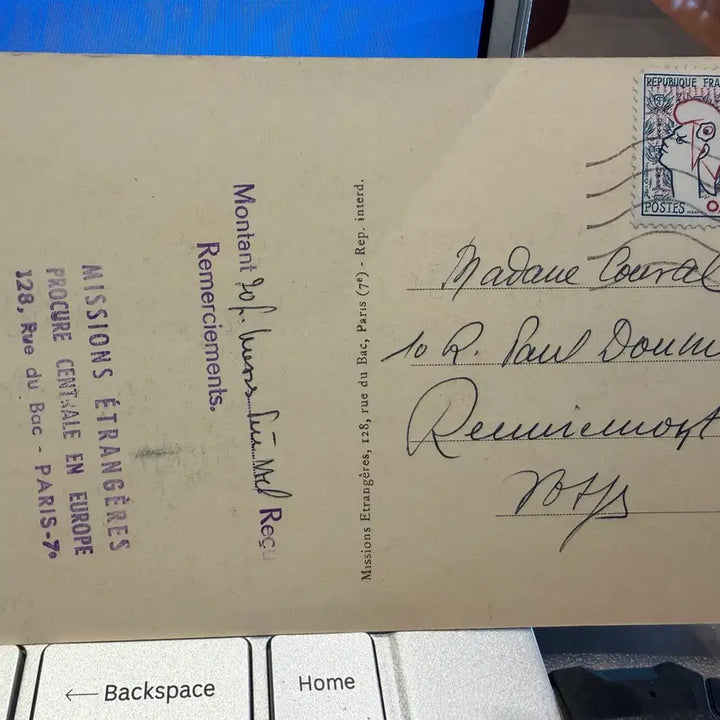 MISSIONS ÉTRANGÈRES
PROCURE CENTRALE EN EUROPE
128, Rue du Bac - PARIS-7e
Montant 20f. Reçu
Remerciements.
Missions Etrangères, 128, rue du Bac, Paris (7e) - Rep. interd.
REPUBLIQUE FRA
POSTES
Madame
10 R. Paul Doum
Remiremont
Vosges
← Backspace
Home